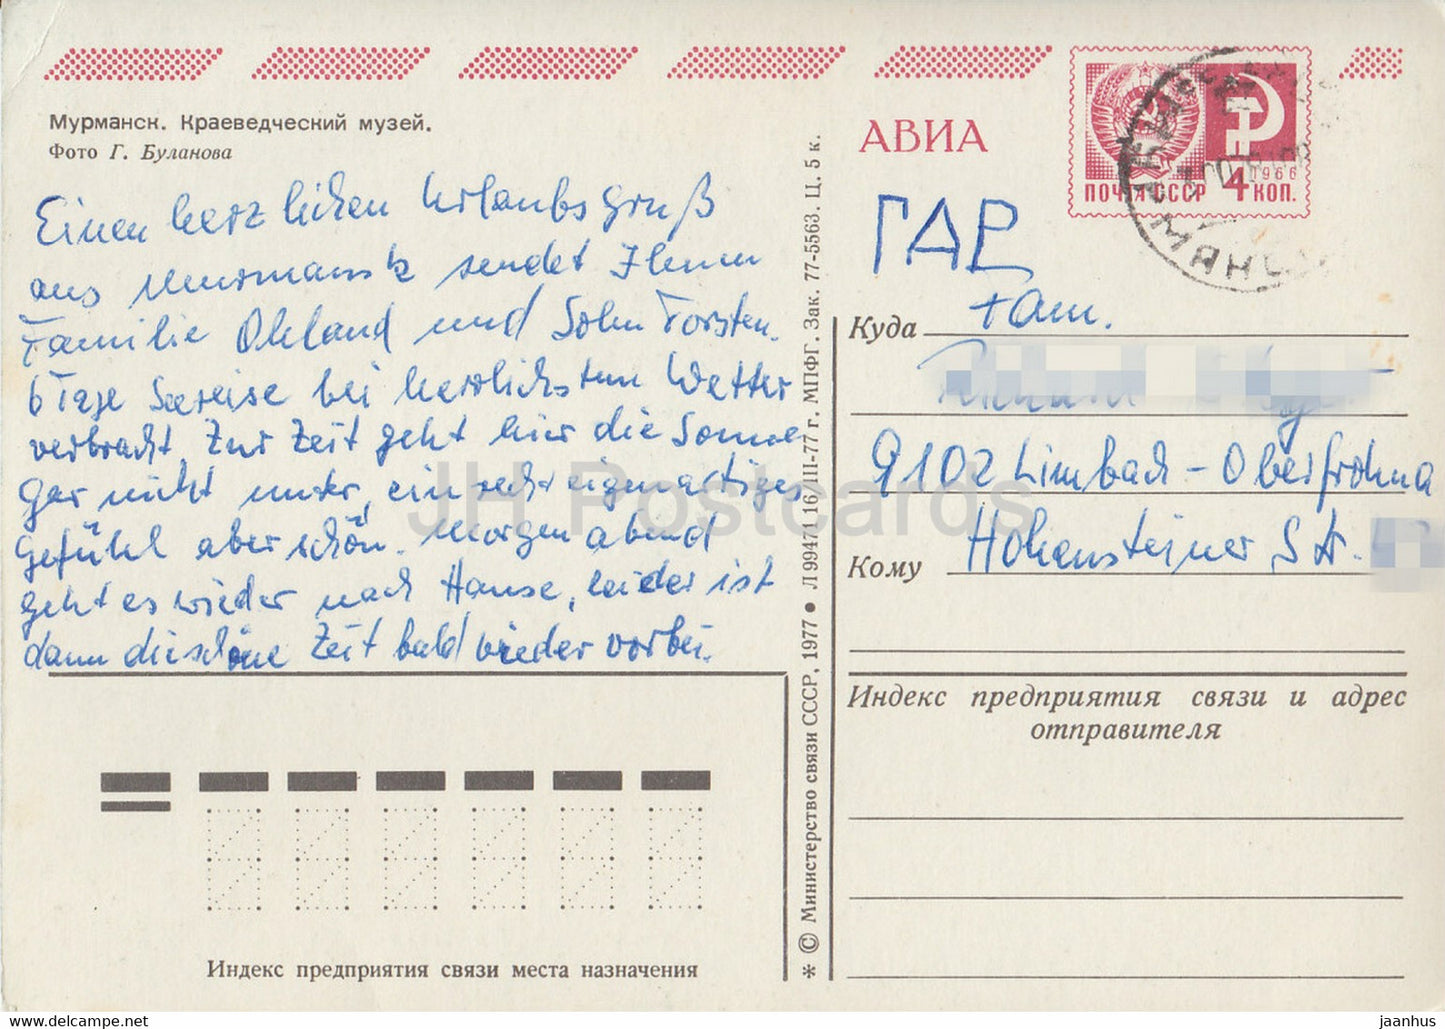 Мурманск. Краеведческий музей.
Фото Г. Буланова
Einen herzlichen Urlaubsgruß
aus Murmansk sendet Ihnen
Familie Ohland und Sohn Torsten.
6 Tage Seereise bei herzlichstem Wetter
verbracht. Zur Zeit geht hier die Sonne
gar nicht unter, ein recht eigenartiges
Gefühl aber schön. Morgen abend
geht es wieder nach Hause, leider ist
dann die schöne Zeit bald wieder vorbei.
Индекс предприятия связи места назначения
* © Министерство связи СССР, 1977 ● Л 99471 16/III-77 г. МПФГ. Зак. 77-5563. Ц. 5 к.
АВИА
ПОЧТА СССР 4 КОП.
1966
ГДР
Куда Fam.
9102 Limbach-Oberfrohna
Кому Hohensteiner Str.
Индекс предприятия связи и адрес
отправителя
JH Postcards
HipPostcard.com
jaanhus